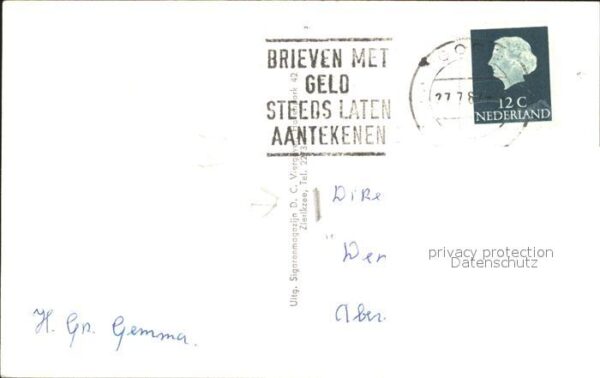 BRIEVEN MET
GELD
STEEDS LATEN
AANTEKENEN
27.7.6
12 C
NEDERLAND
Uitg. Sigarenmagazijn D. C.
Zierikzee, Tel.
Dike
Der
Aber
privacy protection
Datenschutz
H. Gr. Gemma.